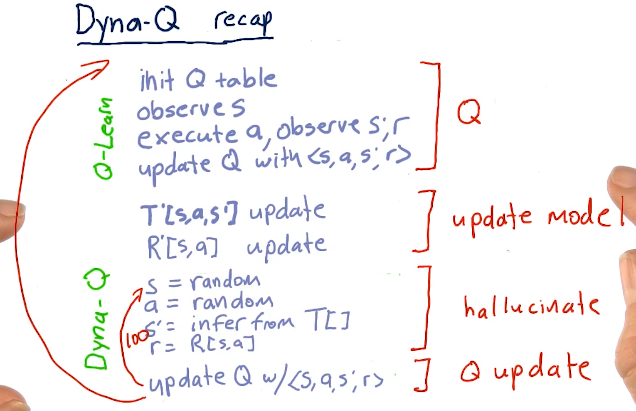 Dyna-Q recap
init Q table
observe s
execute a, observe s', r
update Q with <s,a,s',r>
Q-Learn
Q
T'[s,a,s'] update
R'[s,a] update
update model
s = random
a = random
s' = infer from T[]
r = R[s,a]
100
Dyna-Q
hallucinate
update Q w/<s,a,s',r>
Q update